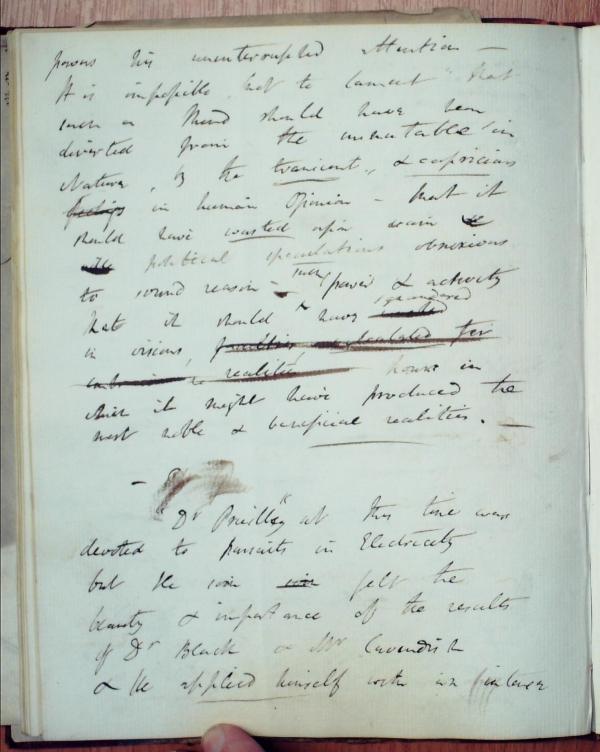 powers his uninterrupted attention —
It is impossible not to lament that
such a Mind should have been
diverted from the immutable in
Nature, by the transient, & capricious
feelings in human Opinion – that it
should have wasted upon vain
political speculations obnoxious
to sound reason – such powers & activity
that it should have squandered
in visions, hours in
which it might have produced the
most noble & beneficial realities. —
—
"Dr Priestley at this time was
devoted to pursuits in Electricity
but He soon soon felt the
beauty & importance of the results
of Dr Black & Mr Cavendish
& He applied himself with